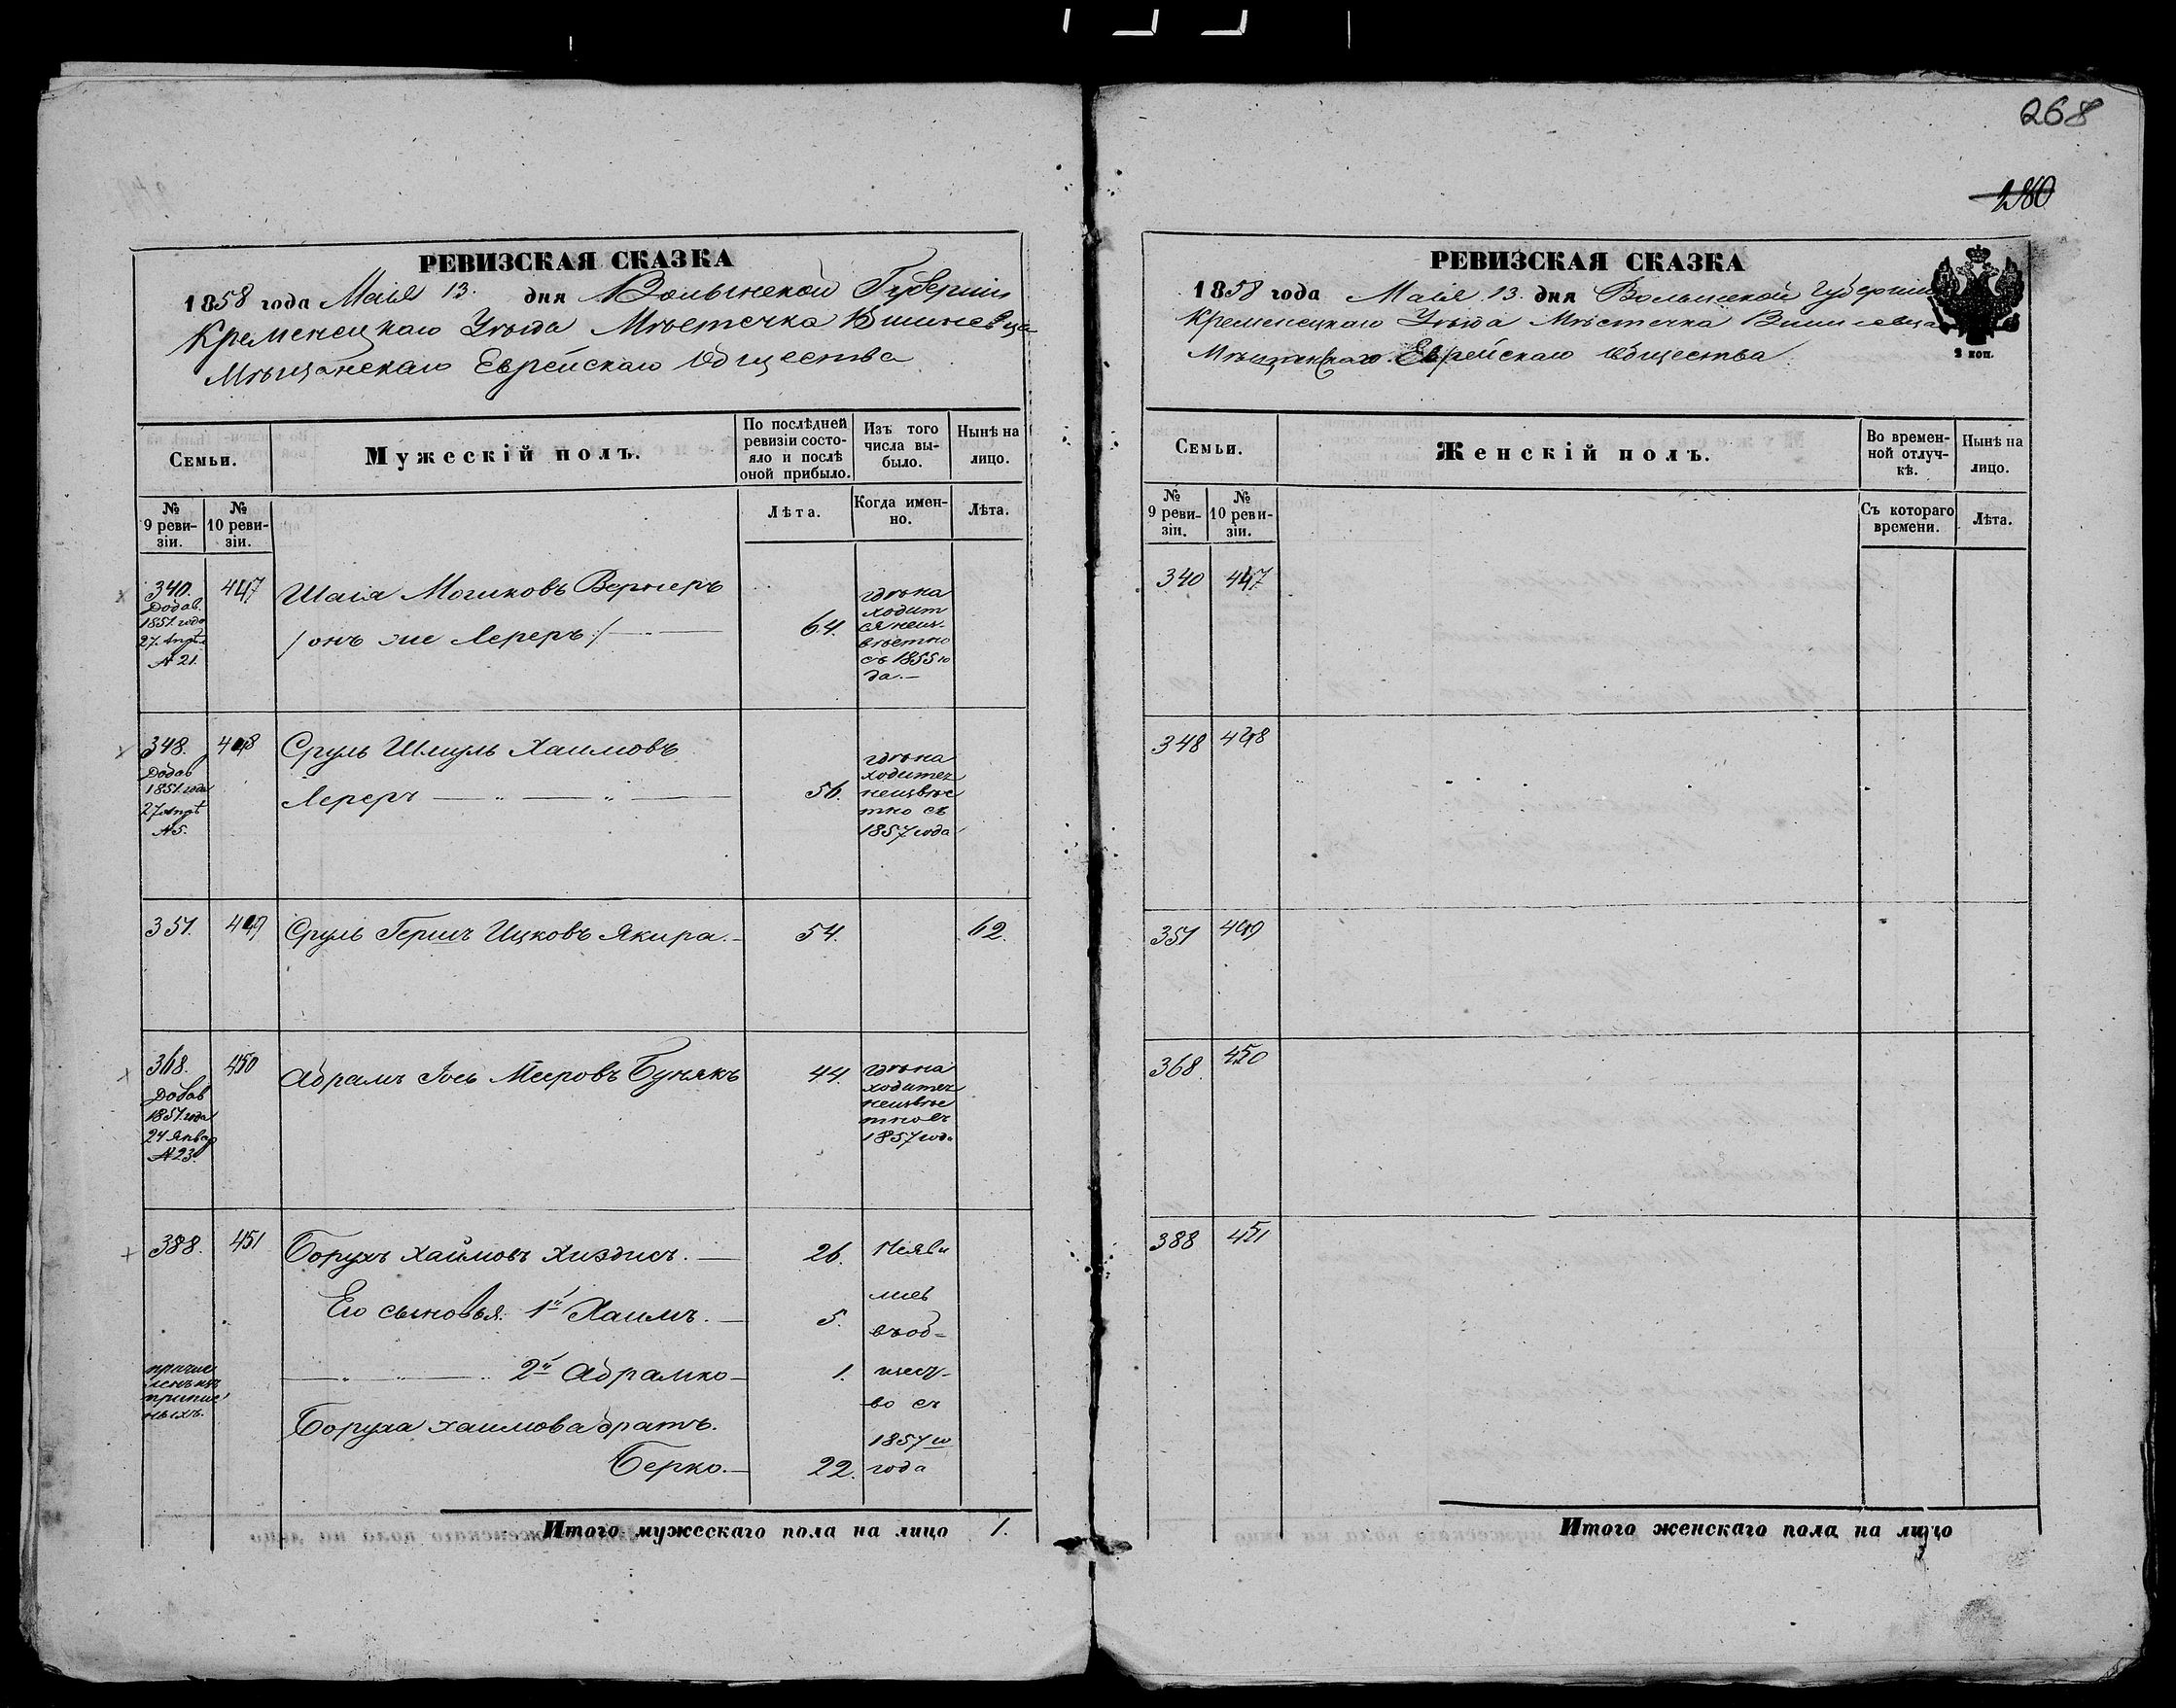 268
180
РЕВИЗСКАЯ СКАЗКА
1858 года Маія 13. дня Волынской Губерніи
Кременецкаго Уѣзда Мѣстечка Вишневца
Мѣщанскаго Еврейскаго Общества
Семьи.
Мужескій полъ.
По послѣдней ревизіи состояло и послѣ оной прибыло.
Изъ того числа выбыло.
Нынѣ на лицо.
№ 9 ревизіи.
№ 10 ревизіи.
Лѣта.
Когда именно.
Лѣта.
340. 447 Шаія Мошковъ Вернеръ
Додав. 1851 года 27. Апр. № 21.
/онъ же Лереръ:/ 64.
гдѣ находится неизвѣстно съ 1855 года.
348. 448 Сруль Шмуль Хаимовъ
Додав 1851 года 27 Апр № 5.
Лереръ 56.
гдѣ находится неизвѣстно съ 1857 года
351. 449 Сруль Гершъ Ицковъ Якира. 54. 62.
368. 450 Абрамъ Іось Мееровъ Бунякъ 44.
Додав 1851 года 24 Январ № 23.
гдѣ находится неизвѣстно въ 1857 года
388. 451 Борухъ Хаимовъ Хиздисъ. 26.
Его сыновья: 1й Хаимъ. 5.
2й Абрамко 1.
Боруха Хаимова братъ.
Берко. 22.
1857 го года
Итого мужескаго пола на лицо 1.
РЕВИЗСКАЯ СКАЗКА
1858 года Маія 13. дня Волынской Губерніи
Кременецкаго Уѣзда Мѣстечка Вишневца
Мѣщанскаго Еврейскаго Общества
2 коп.
Семьи.
Женскій полъ.
Во временной отлучкѣ.
Нынѣ на лицо.
№ 9 ревизіи.
№ 10 ревизіи.
Съ котораго времени.
Лѣта.
340 447
348 448
351 449
368 450
388 451
Итого женскаго пола на лицо